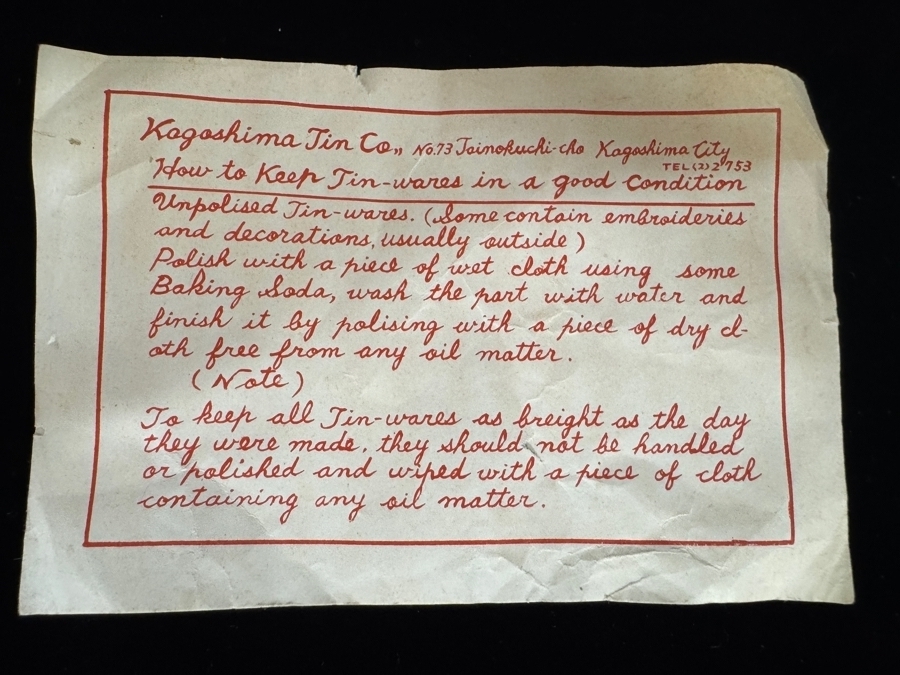 Kagoshima Tin Co,, No.73 Tainokuchi-cho Kagoshima City
TEL (2) 2753
How to Keep Tin-wares in a good Condition
Unpolised Tin-wares. (Some contain embroideries
and decorations, usually outside)
Polish with a piece of wet cloth using some
Baking Soda, wash the part with water and
finish it by polising with a piece of dry cl-
oth free from any oil matter.
(Note)
To keep all Tin-wares as breight as the day
they were made, they should not be handled
or polished and wiped with a piece of cloth
containing any oil matter.